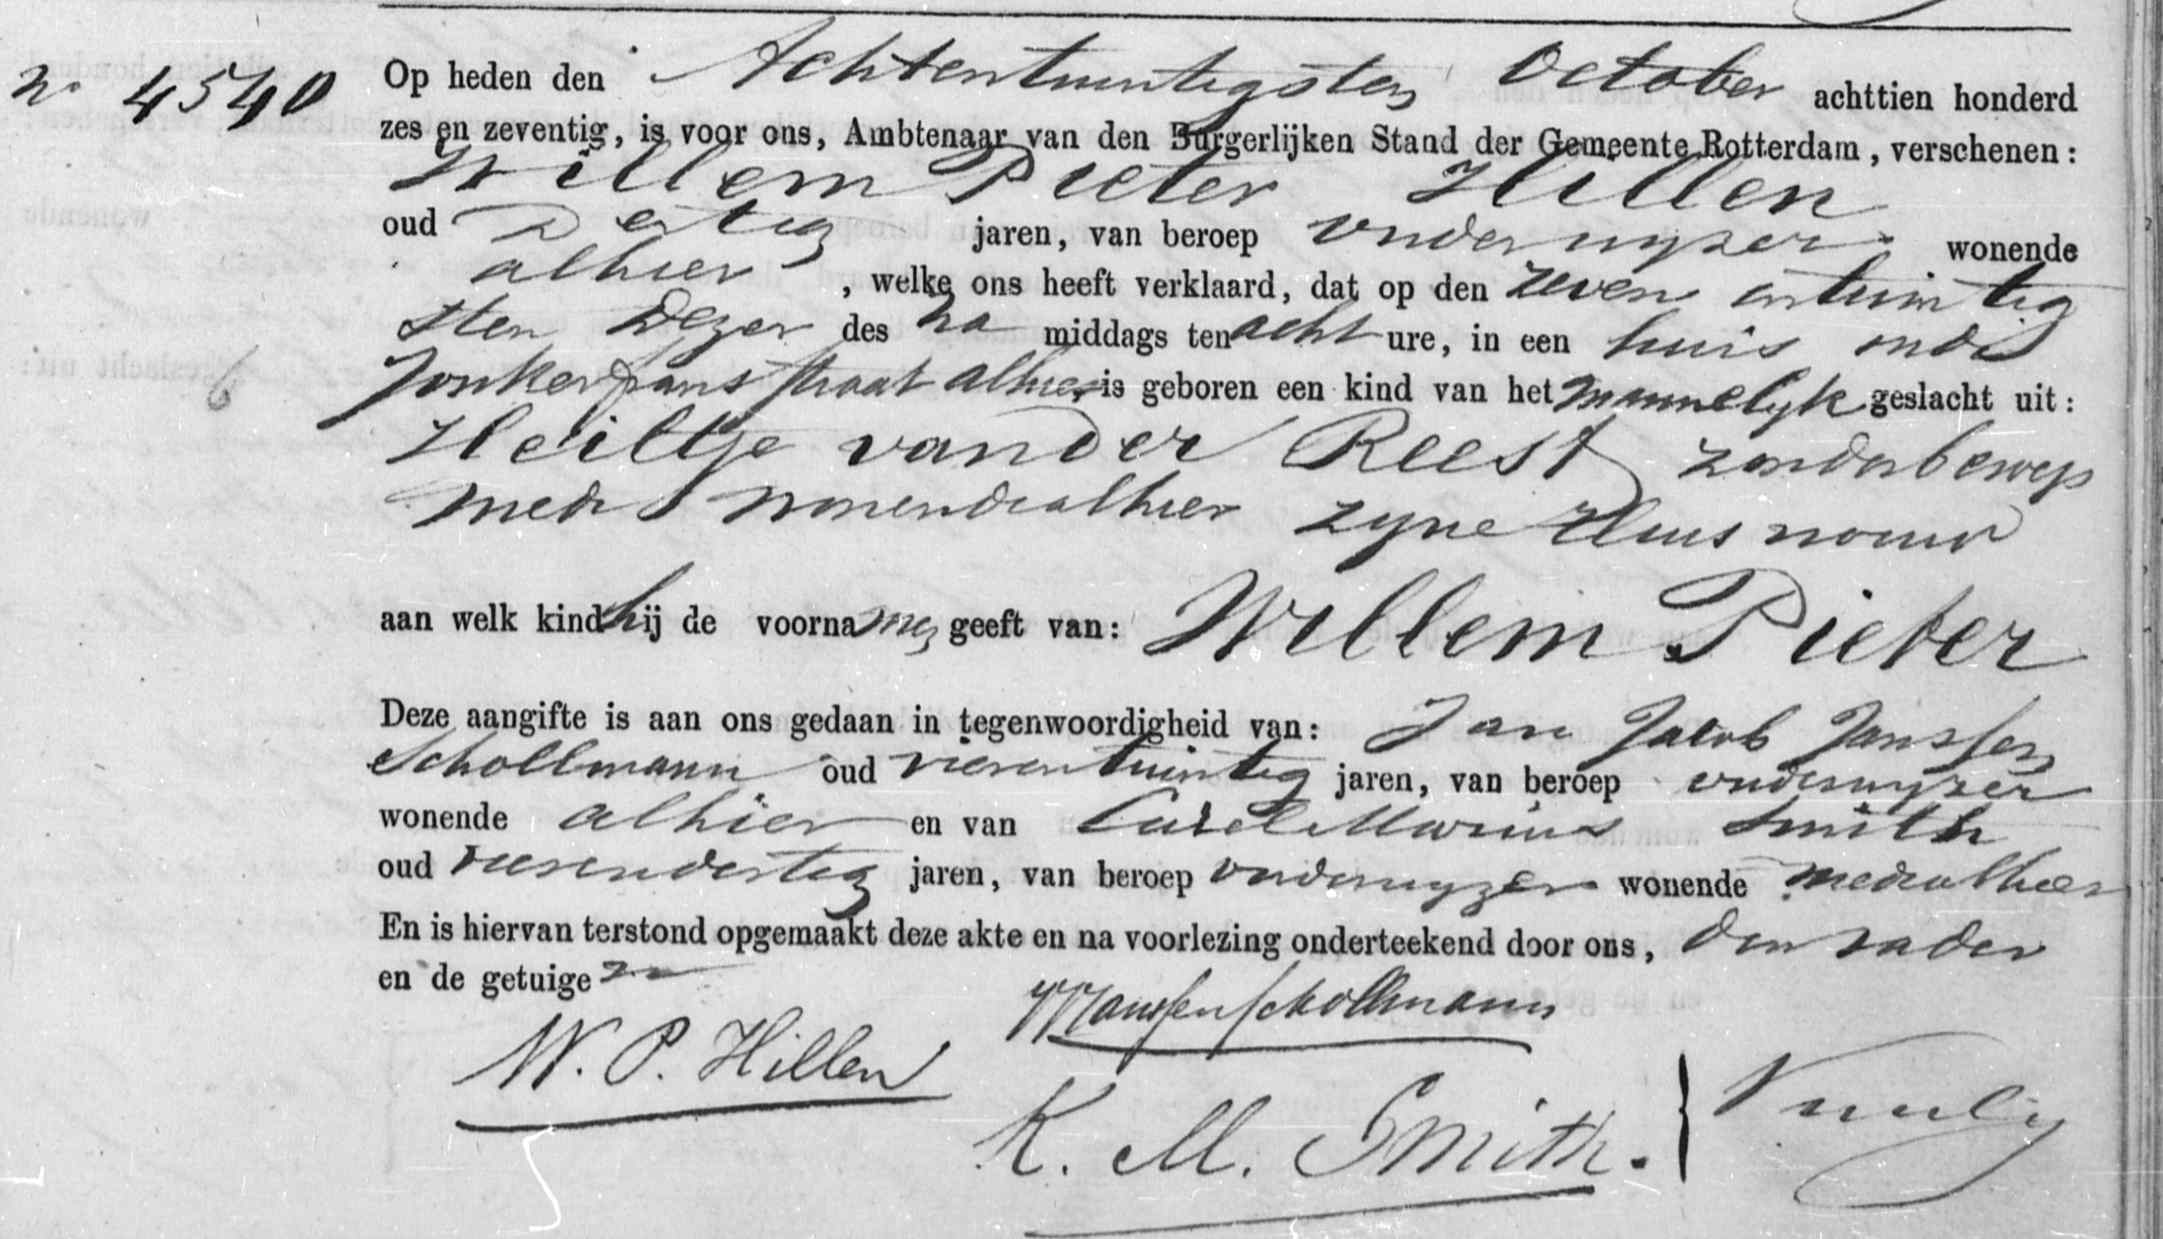 No 4540
Op heden den Achtentwintigsten October achttien honderd
zes en zeventig, is voor ons, Ambtenaar van den Burgerlijken Stand der Gemeente Rotterdam, verschenen:
Willem Pieter Hillen
oud Dertig jaren, van beroep onderwyzer wonende
alhier, welke ons heeft verklaard, dat op den zeven entwintig
sten dezer des na middags ten acht ure, in een huis in de
Jonkerfransstraat alhier is geboren een kind van het mannelyk geslacht uit:
Heiltje van der Reest zonder beroep
mede wonende alhier zyne Huisvrouw
aan welk kind hij de voornamen geeft van: Willem Pieter
Deze aangifte is aan ons gedaan in tegenwoordigheid van: Jan Jacob Janssen
Schollmann oud vierentwintig jaren, van beroep onderwyzer
wonende alhier en van Carel Marius Smith
oud vierendertig jaren, van beroep onderwyzer wonende mede alhier
En is hiervan terstond opgemaakt deze akte en na voorlezing onderteekend door ons, den vader
en de getuigen
JJJanssenSchollmann
W. P. Hillen
K. M. Smith.